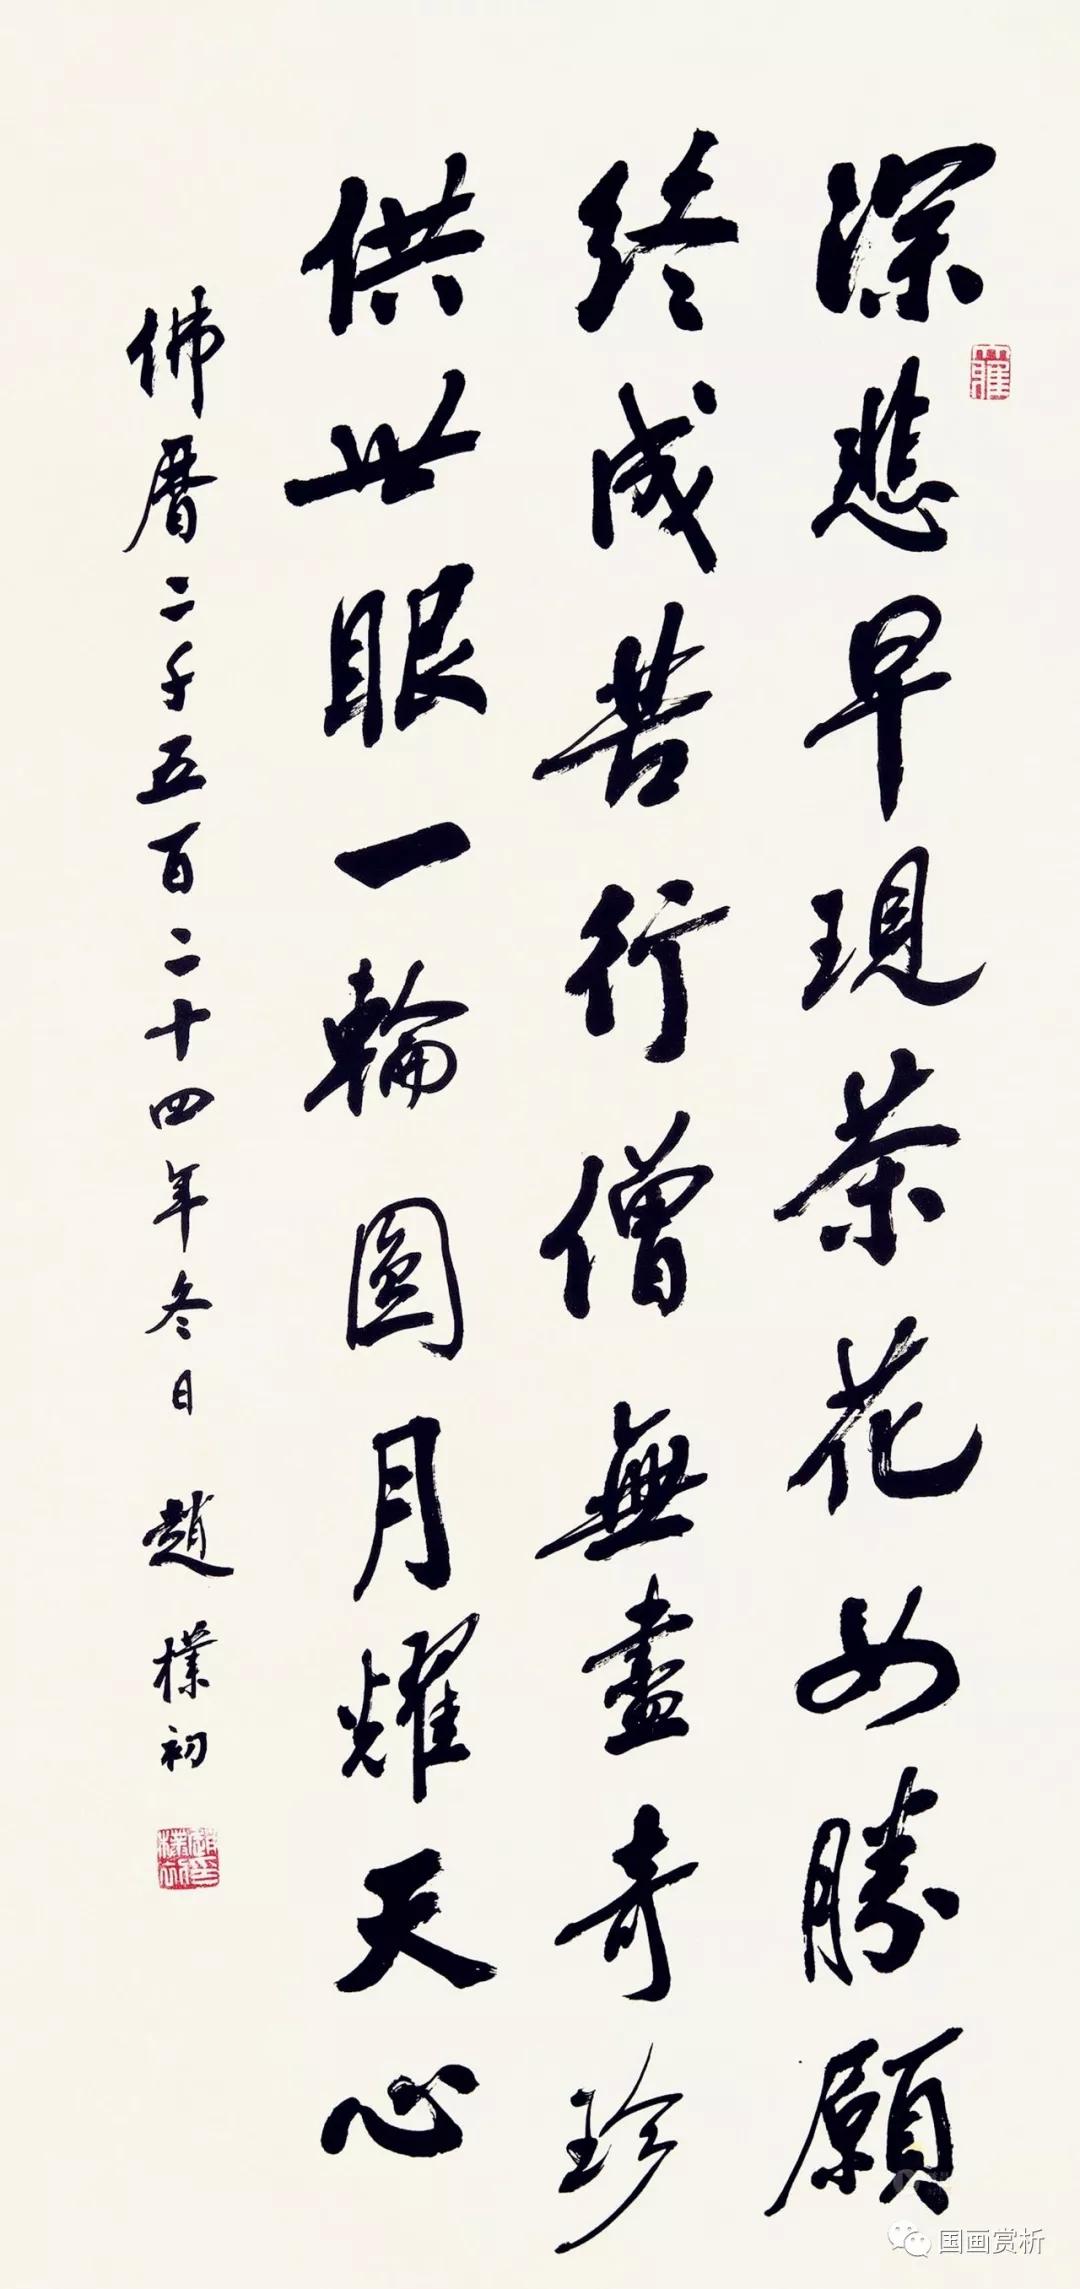 深悲早現茶花女勝願
終成苦行僧無盡奇珍
供世眼一輪圓月耀天心
佛曆二千五百二十四年冬日 趙樸初
国画赏析